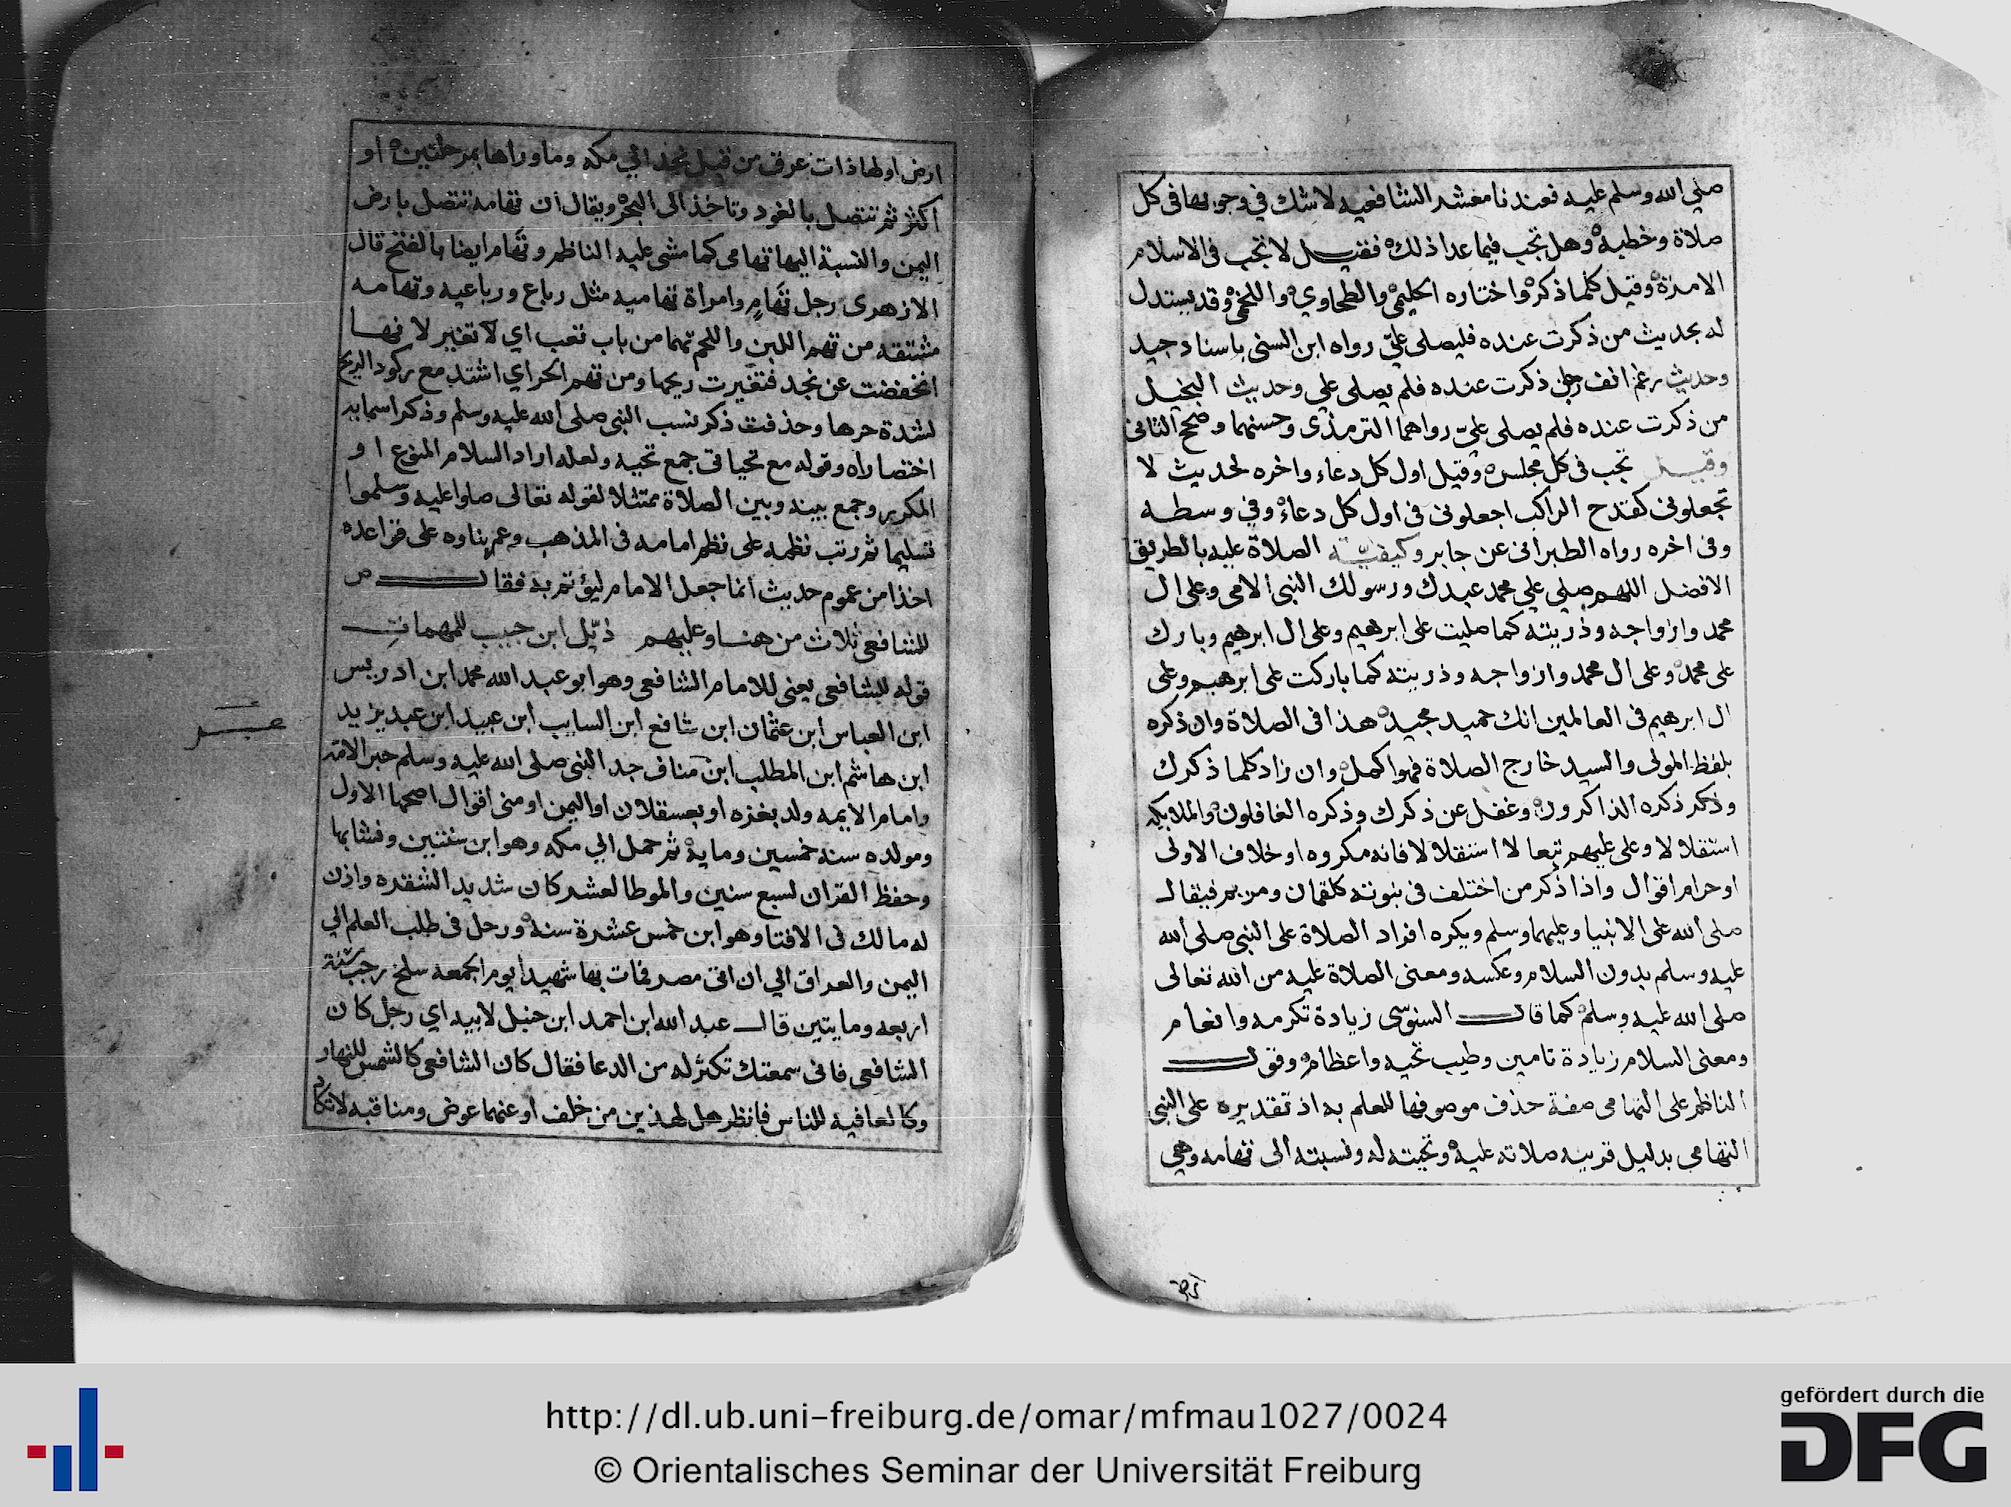 صلي الله وسلم عليه فعندنا معشر الشافعيه لاشك في وجوبها فى كل
صلاة وخطبه وهل تجب فيما عدا ذلك فقيل لا تجب فى الاسلام
الامرة وقيل كلما ذكر واختاره الحليمي والطحاوي واللخمي وقد يستدل
له بحديث من ذكرت عنده فليصلى علي رواه ابن السنى باسناد جيد
وحديث رغم انف رجل ذكرت عنده فلم يصلى علي وحديث البخيل
من ذكرت عنده فلم يصلى علي رواهما الترمذي وحسنهما وصحح الثانى
وقيل تجب فى كل مجلس وقيل اول كل دعاء واخره لحديث لا
تجعلونى كقدح الراكب اجعلونى فى اول كل دعاء وفي وسطه
وفى اخره رواه الطبرانى عن جابر وكيفيته الصلاة عليه بالطريق
الافضل اللهم صلى علي محمد عبدك ورسولك النبى الامى وعلى ال
محمد وازواجه وذريته كما صليت على ابرهيم وعلى ال ابرهيم وبارك
على محمد وعلى ال محمد وازواجه وذريته كما باركت على ابرهيم وعلى
ال ابرهيم فى العالمين انك حميد مجيد هذا فى الصلاة وان ذكره
بلفظ المولى والسيد خارج الصلاة فهو اكمل وان زاد كلما ذكرك
وذكر ذكره الذاكرون وغفل عن ذكرك وذكره الغافلون والملايكه
استقلالا وعلى عليهم تبعا لا استقلالا فانه مكروه او خلاف الاولى
او حرام اقوال واذا ذكر من اختلف فى نبوته كلقمان ومريم فيقال
صلى الله على الانبيا وعليهما وسلم ويكره افراد الصلاة على النبى صلى الله
عليه وسلم بدون السلام وعكسه ومعنى الصلاة عليه من الله تعالى
صلى الله عليه وسلم كما قال السنوسى زيادة تكرمه وانعام
ومعنى السلام زيادة تامين وطيب تحيه واعظام وقول
الناظم على التهامى صفة حذف موصوفها للعلم به اذ تقديره على النبى
التهامى بدليل قرينه صلاته عليه وتحيته له ونسبته الى تهامه وهي
ارض اولها ذات عرق من قبل نجد الي مكه وماوراها بمرحلتين او
اكثر ثم تتصل بالغور وتاخذ الى البحر ويقال ان تهامه تتصل بارض
اليمن والنسبة اليها تهامى كما مشى عليه الناظم وتهام ايضا بالفتح قال
الازهرى رجل تهام وامراة تهاميه مثل رباع ورباعيه وتهامه
مشتقه من تهم اللبن واللحم تهما من باب تعب اي لا تغير لانها
انخفضت عن نجد فتغيرت ريحها ومن تهم الحر اي اشتد مع ركود الريح
لشدة حرها وحذفت ذكر نسب النبى صلى الله عليه وسلم وذكر اسمايه
اختصاراه وقوله مع تحياتى جمع تحيه ولعله اراد السلام المنوع او
المكرر وجمع بينه وبين الصلاة ممتثلا لقوله تعالى صلوا عليه وسلموا
تسليما ثم رتب نظمه على نظم امامه فى المذهب وعم بناوه على قواعده
اخذا من عموم حديث انما جعل الامام ليؤتم به فقال ص
للشافعى ثلاث من هنا وعليهم ذيّل ابن حبيب للمهمات
قوله للشافعى يعنى للامام الشافعى وهو ابو عبد الله محمد ابن ادريس
ابن العباس ابن عثمان ابن شافع ابن السايب ابن عبيد ابن عبد يزيد
ابن هاشم ابن المطلب ابن مناف جد النبى صلى الله عليه وسلم حبر الامة
وامام الايمه ولد بغزه او بعسقلان او اليمن او منى اقوال اصحها الاول
ومولده سنة خمسين ومايه ثم حمل الي مكه وهو ابن سنتين ونشا بها
وحفظ القران لسبع سنين والموطا لعشر كان شديد الشقره واذن
له مالك فى الافتا وهو ابن خمس عشرة سنه ورحل فى طلب العلم الي
اليمن والعراق الي ان اتى مصر فمات بها شهيدا يوم الجمعه سلخ رجب سنة
اربعه ومايتين قال عبد الله ابن احمد ابن حنبل لابيه اي رجل كان
الشافعى فانى سمعتك تكثر له من الدعا فقال كان الشافعى كالشمس للنهار
وكالعافيه للناس فانظر هل لهذين من خلف او عنهما عوض ومناقبه لا تكاد
http://dl.ub.uni-freiburg.de/omar/mfmau1027/0024
© Orientalisches Seminar der Universität Freiburg
gefördert durch die
DFG